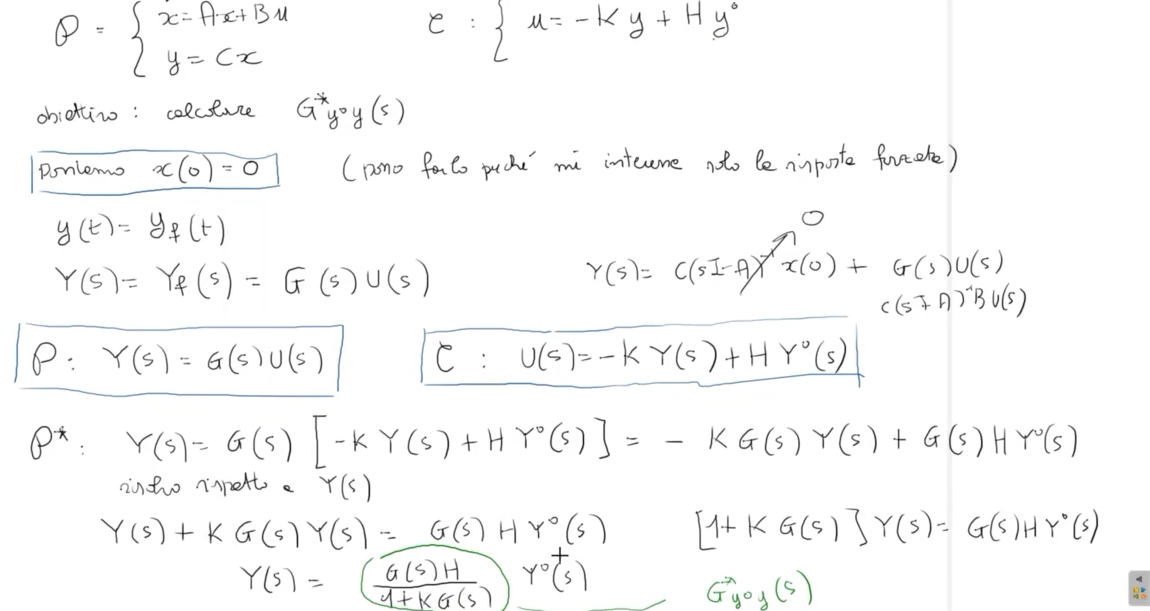 P = { ẋ = Ax + Bu
y = Cx
C : { u = -K y + H y°
obiettivo : calcolare G*y°y(s)
poniamo x(0) = 0 (posso farlo perché mi interessa solo la risposta forzata)
y(t) = yf(t)
Y(s) = Yf(s) = G(s)U(s)
Y(s) = C(sI-A)⁻¹ x(0) + G(s)U(s)
0
C(sI-A)⁻¹BU(s)
P: Y(s) = G(s)U(s)
C : U(s) = -K Y(s) + H Y°(s)
P*: Y(s) = G(s) [-K Y(s) + H Y°(s)] = - K G(s) Y(s) + G(s) H Y°(s)
risolvo rispetto a Y(s)
Y(s) + K G(s) Y(s) = G(s) H Y°(s) [1 + K G(s)] Y(s) = G(s) H Y°(s)
Y(s) = G(s)H / 1+KG(s) Y°(s) G*y°y(s)